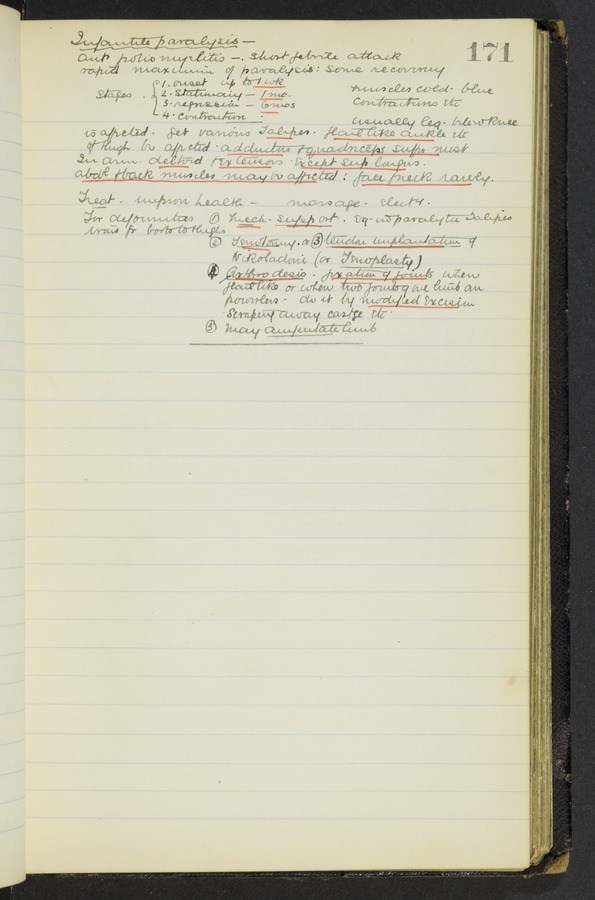 171
Infantile paralysis —
Ant. polio myelitis —. Short febrile attack
rapid maximum of paralysis: Some recovery
Stages. 1. onset up to 1 wk
2. Stationary — 1 mo.
3. regression — 6 mos
4. contraction :
muscles cold. blue
Contractions etc
usually leg. below knee
is affected. Get various Talipes. flail like ankle etc
If thigh be affected. adductors & quadriceps suffer most
In arm. deltoid & extensors. Except sup longus.
abdl & back muscles may be affected : face & neck rarely.
Treat. improve health — massage. electy.
For deformities ① Mech. support. Eg. in paralytic Talipes
irons fr boots to thighs
② Tenotomy. or ③ tendon implantation of
Nikoladoni (or Tenoplasty)
④ Arthrodesis. fixation of joints when
flail like or when two joints give limb all
powerless. do it by modified Excision
Scraping away castge etc.
⑤ may amputate limb